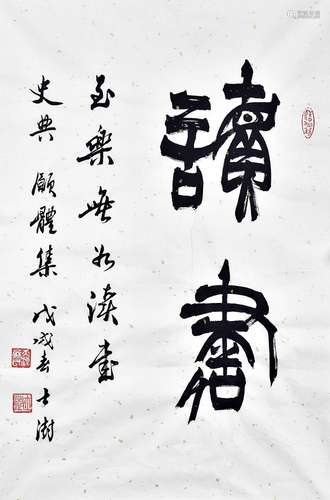 讀書
至樂無如漢書
史典顧體集 戊戌春 士澍